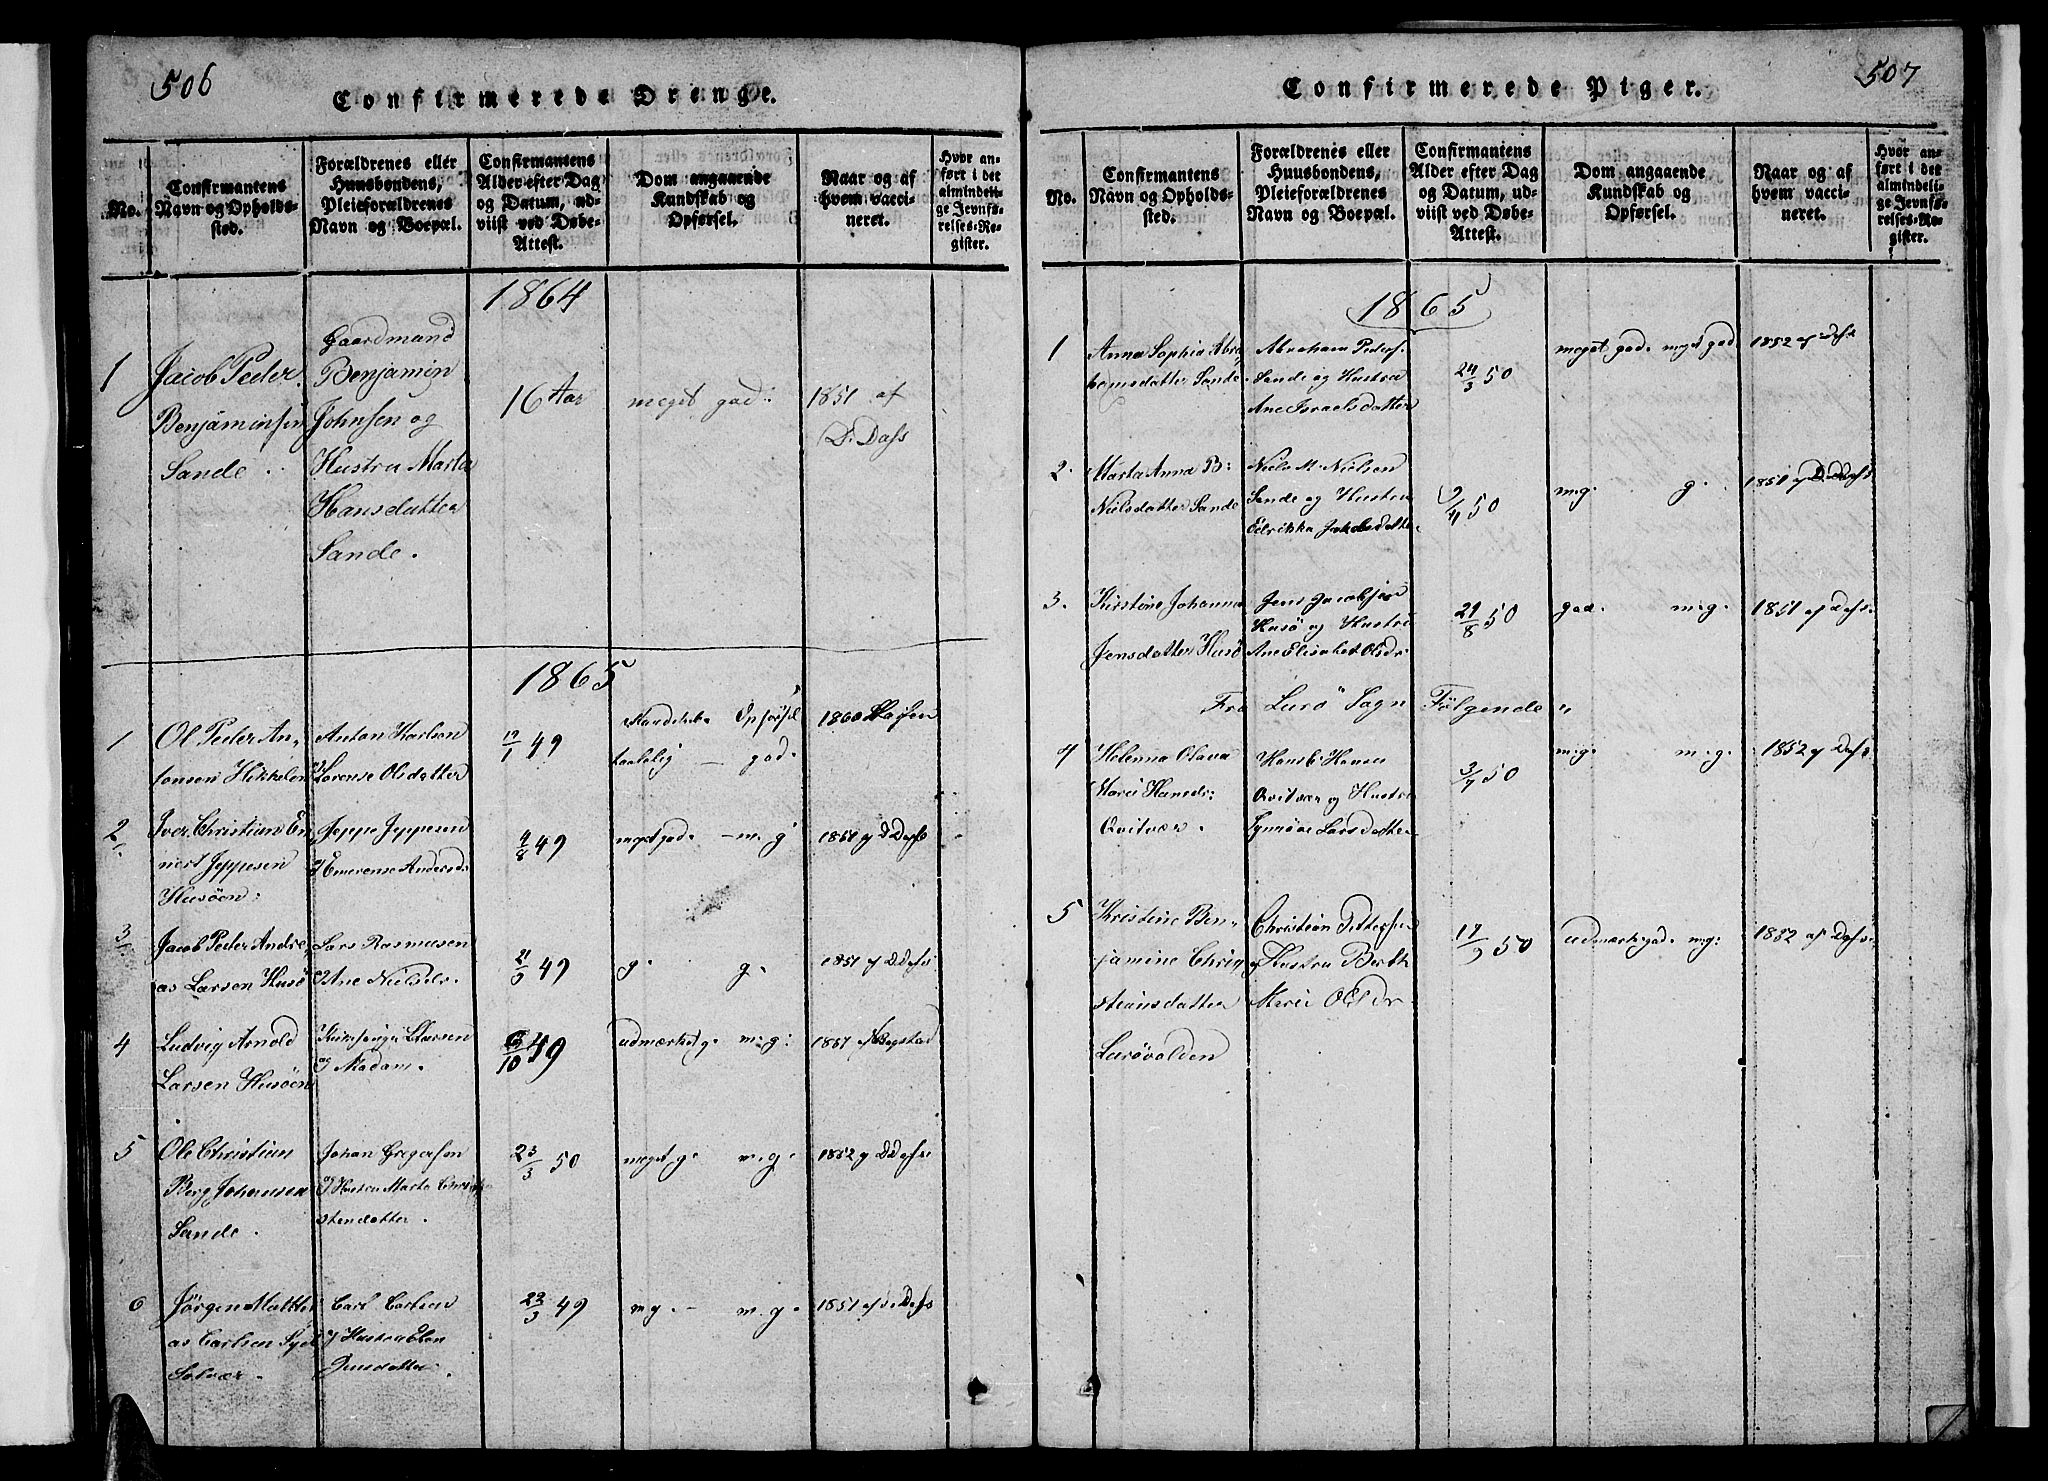 506
Confirmerede Drenge.
No.
Confirmantens Navn og Opholds-sted.
Forældrenes eller Huusbondens, Pleieforældrenes Navn og Boepæl.
Confirmantens Alder efter Dag og Datum, ud-viist ved Døbe-Attest.
Dom angaaende Kundskab og Opførsel.
Naar og af hvem vacci-neret.
Hvor an-ført i det almindeli-ge Jevnfø-relses-Re-gister.
1864
1
Jacob Peder
Benjaminsen
Sande
Gaardmand
Benjamin
Johnsen og
Hustru Marta
Hansdatter
Sande.
16 Aar
meget god
1851 af
D. Dass
1865
1
Ol Peder An-
tonsen
Anton Karlsen
Lorense Olsdatter
17/1 49
Kundskab Opførsel
taalelig - god.
1860
2
Iver Christian En
nert Jeppesen
Husöen
Jeppe Jeppesen
Emerense Andersd
4/8 49
megetgod - m. g
1851 D Dass
3
Jacob Peder Andre
as Larsen Husö
Lars Rasmusen
Ane Nielsdr.
21/9 49
g. g.
1851 D Dass
4
Ludvig Arnold
Larsen Husöen
Larsen
og Madam.
6/10 49
udmærket g. m. g:
1851 af Bogstad
5
Ole Christian
Berg Johansen
Sande.
Johan Gregersen
Hustru Marta Chri
stendatter.
23/3 50
meget g. m. g.
1852 D Dass
6
Jörgen Matthe
as Carlsen Syd
Solvær.
Carl Carlsen
Hustru Elen
Jensdatter.
22/3 49
m g. - m. g.
1851 af D. Dass
507
Confirmerede Piger.
No.
Confirmantens Navn og Opholds-sted.
Forældrenes eller Huusbondens, Pleieforældrenes Navn og Boepæl.
Confirmantens Alder efter Dag og Datum, ud-viist ved Døbe-Attest.
Dom angaaende Kundskab og Opførsel.
Naar og af hvem vacci-neret.
Hvor an-ført i det almindeli-ge Jevnfø-relses-Re-gister.
1865
1
Anna Sophia Abra
hamsdatter Sande
Abraham Peders.
Sande og Hustru
Ane Israelsdatter
24/3 50
meget god. meget god
1852 af Dass
2.
Marta Anna B:
Nielsdatter Sande
Niels M. Nielsen
Sande og Hustru
Edrikka Jakobsdatter
9/4 50
m.g. g.
1851 D Dass
3.
Kirstine Johanna
Jensdatter Husö
Jens Jacobsen
Husö og Hustru
Ane Elisabet Olsdr.
29/8 50
god. m.g.
1851 af Dass.
Fra Lurö Sogn Følgende
4
Helenna Olava
Marie Hansdr:
Qvitvær.
Hans Hansen
Qvitvær og Hustru
Synnöve Larsdatter
3/7 50
m.g. m.g.
1852 Dass
5
Kristine Ben-
jamine Chri
stiansdatter
Lurövolden
Christian Petters
Hustru Berth
Marie Olsdr
17/9 50
udmærket god. m.g:
1852 af Dass.